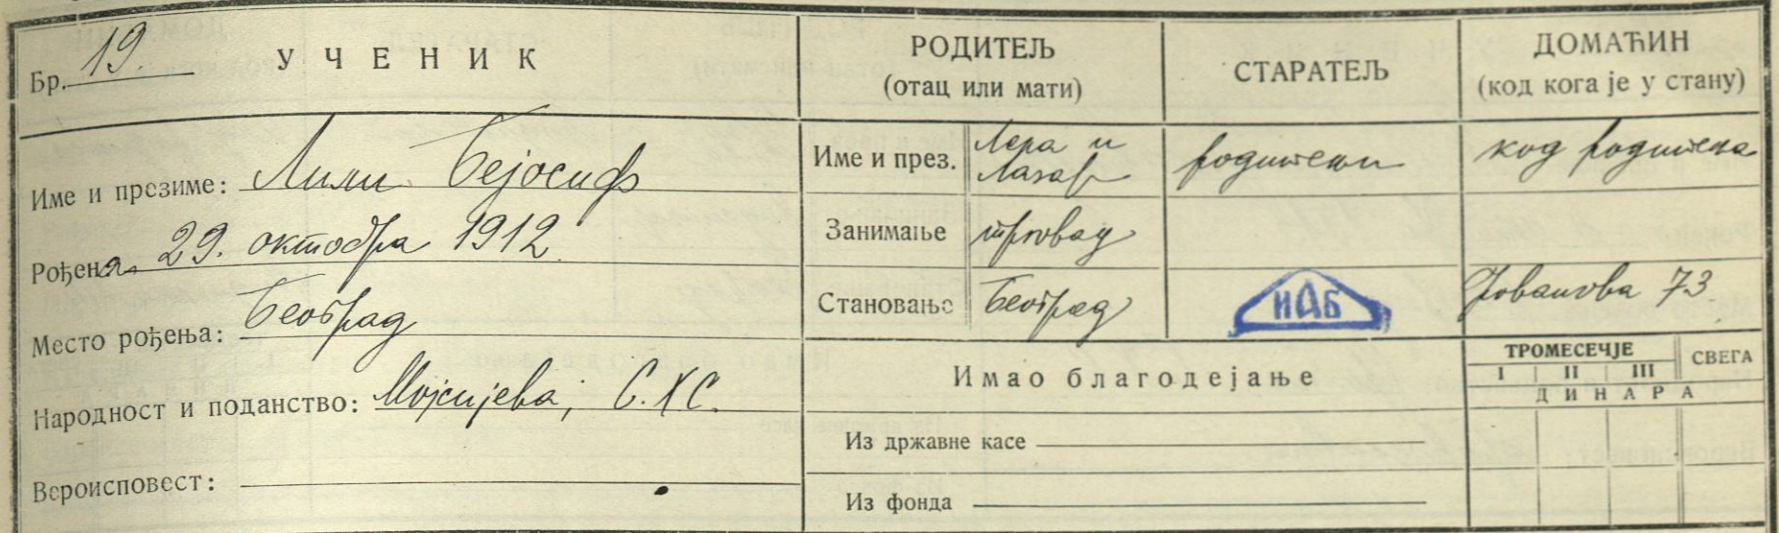 Бр. 19. УЧЕНИК
Име и презиме: Лили Бејосиф
Рођена 29. октобра 1912.
Место рођења: Београд
Народност и поданство: Мојсијева, С.Х.С.
Вероисповест:
РОДИТЕЉ
(отац или мати)
СТАРАТЕЉ
ДОМАЋИН
(код кога је у стану)
Име и през. Лера и Лазар родитељи код родитеља
Занимање трговац
Становање Београд ИАБ Јованова 73
Имао благодејање
ТРОМЕСЕЧЈЕ СВЕГА
I II III
ДИНАРА
Из државне касе
Из фонда